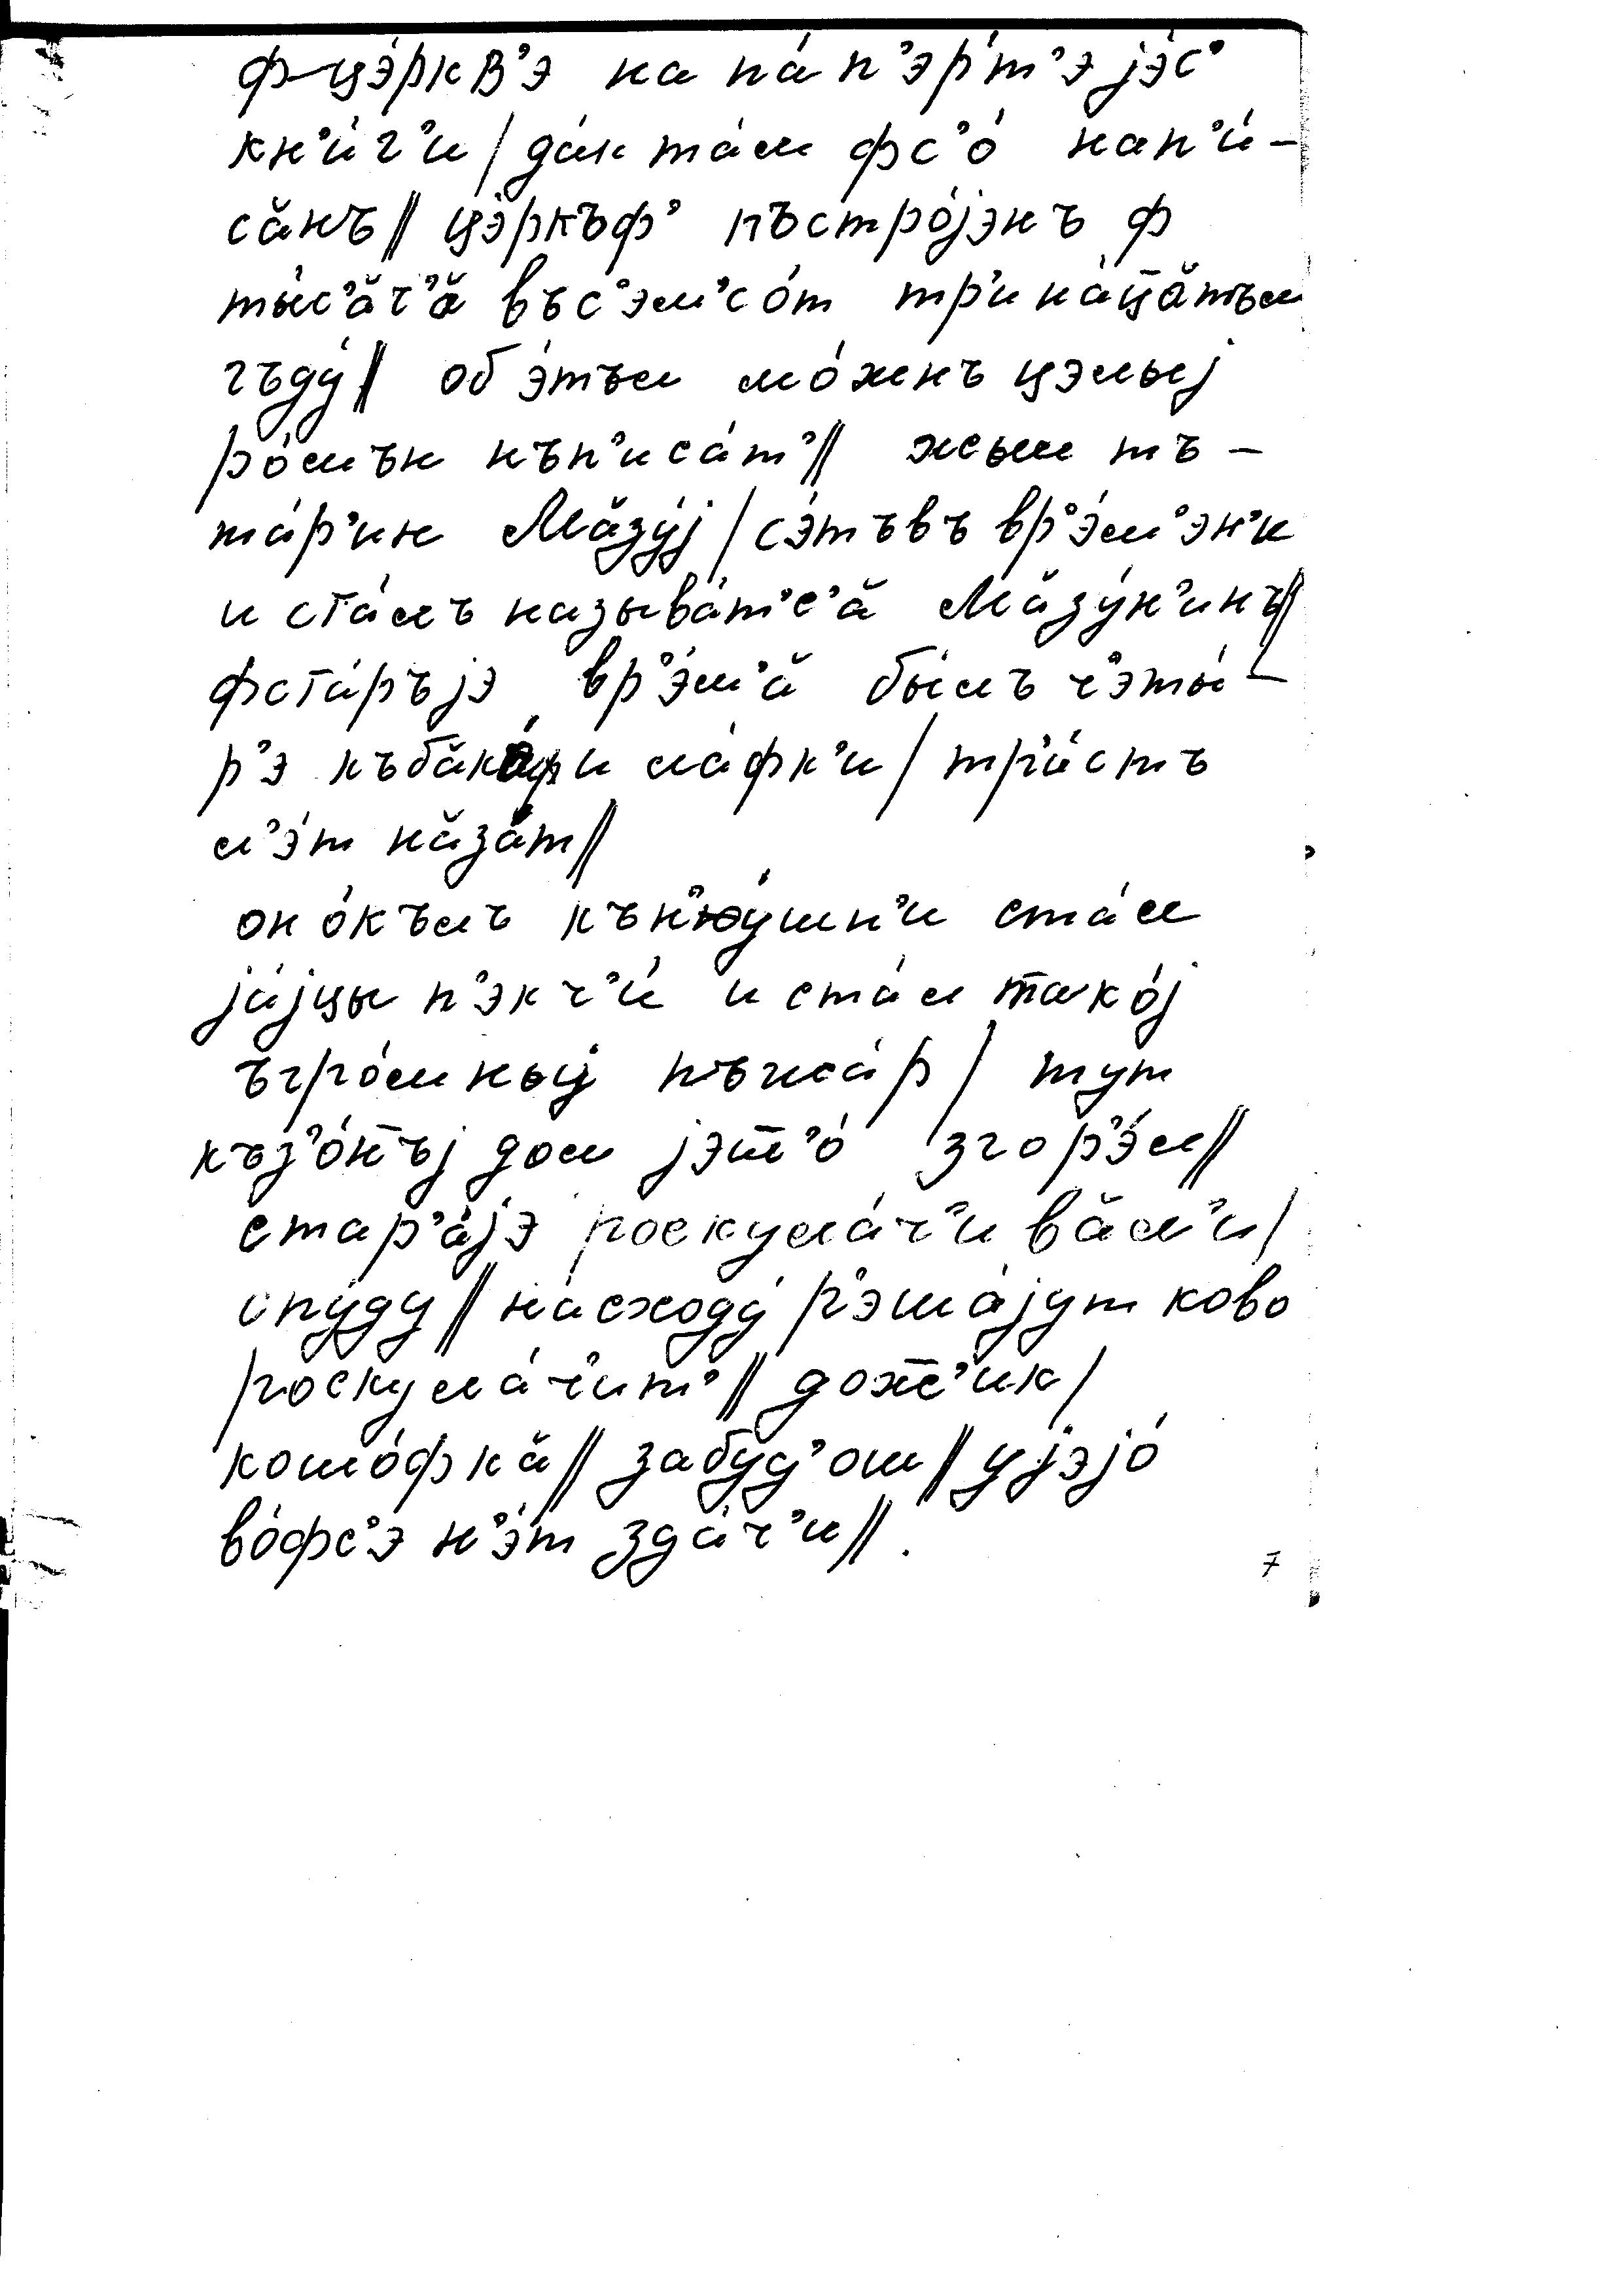 ф-цэ́ркв’э на па́п’эр́т’э јэ́с’
кн’и́г’и / да́к та́м фс’о́ нап’и́-
сӑнъ // цэ́ркъф’ пъстро́јэнъ ф
ты́с’ӑч’ӑ въс’эм’со́т тр’ина́ц̅ӑтъм
гъду́ // об э́тъм мо́жнъ цэлыј
ро́мън нъп’иса́т’ // жыл тъ-
та́р’ин Мӑзу́ј / с э́тъвъ вр’э́м’эн’и
и ста́лъ называ́т’с’ӑ Мӑзу́н’инъ //
фста́ръјэ вр’э́м’ӑ бы́лъ ч’эты́-
р’э къбӑка́ и ла́фк’и / тр’и́стъ
л’э́т нӑза́т //
он о́къль кън’у́шн’и ста́л
ја́јцы п’экч’и́ и ста́л такој́
ъгро́мныј пъжа́р / тут
къз’о́н̅ъј дом јэт’о́ згор’э́л //
стар’а́јэ роскула́ч’ивӑл’и /
спу́ду // на́сходу́ р’эша́јут ково
роскула́ч’ит’ // дож̅’ик /
кошо́фкӑ // забуд’ош // у јэјо́
во́фс’э н’э́т зда́ч’и //.
7